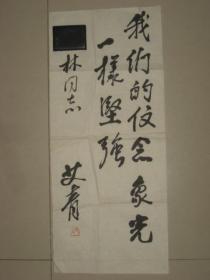 我们的信念象光
一樣堅強
林同志
艾青